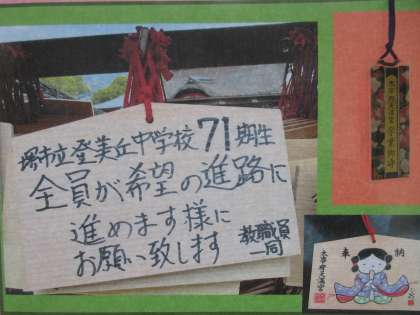 堺市立登美丘中学校71期生
全員が希望の進路に
進めます様に
お願い致します
教職員
一同
奉納
太宰府天満宮